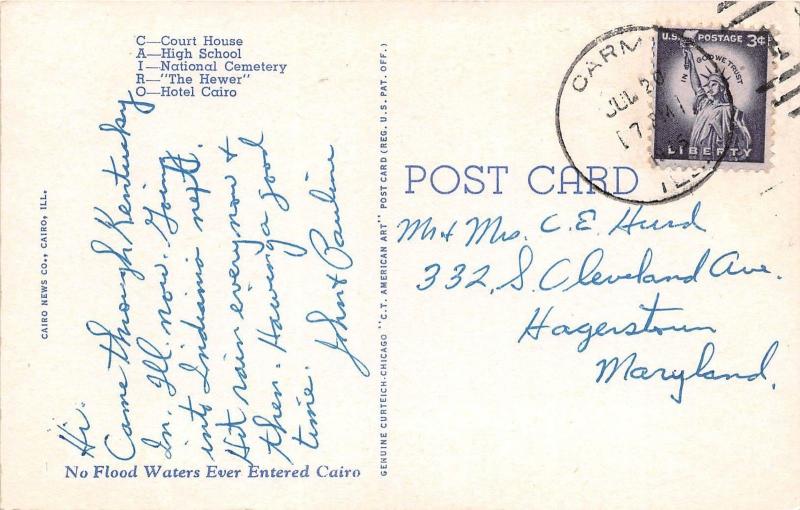 C—Court House
A—High School
I—National Cemetery
R—"The Hewer"
O—Hotel Cairo
CAIRO NEWS CO., CAIRO, ILL.
Hi.
Came through Kentucky
In. Ill. now. Going
into Indiana next.
Hit rain every now &
then. Having a good
time.
John & Pauline
No Flood Waters Ever Entered Cairo
GENUINE CURTEICH-CHICAGO "C.T. AMERICAN ART" POST CARD (REG. U.S. PAT. OFF.)
POST CARD
CARM
JUL 20
ILL.
U.S. POSTAGE 3¢
IN GOD WE TRUST
LIBERTY
Mr & Mrs. C. E. Hurd
332, S. Cleveland Ave.
Hagerstown
Maryland.